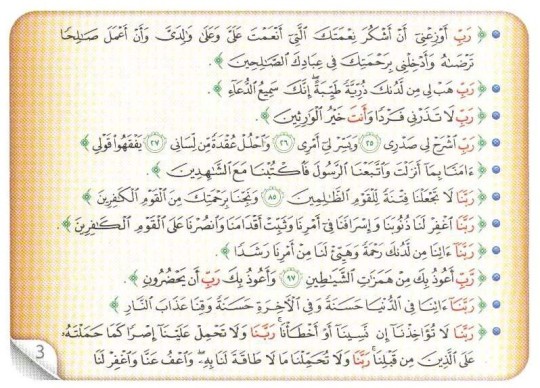 ﴿ رَبِّ أَوْزِعْنِىٓ أَنْ أَشْكُرَ نِعْمَتَكَ ٱلَّتِىٓ أَنْعَمْتَ عَلَىَّ وَعَلَىٰ وَٰلِدَىَّ وَأَنْ أَعْمَلَ صَٰلِحًا
تَرْضَىٰهُ وَأَدْخِلْنِى بِرَحْمَتِكَ فِى عِبَادِكَ ٱلصَّٰلِحِينَ ﴾.
﴿ رَبِّ هَبْ لِى مِن لَّدُنكَ ذُرِّيَّةً طَيِّبَةً ۖ إِنَّكَ سَمِيعُ ٱلدُّعَآءِ ﴾.
﴿ رَبِّ لَا تَذَرْنِى فَرْدًا وَأَنتَ خَيْرُ ٱلْوَٰرِثِينَ ﴾.
﴿ رَبِّ ٱشْرَحْ لِى صَدْرِى ٢٥ وَيَسِّرْ لِىٓ أَمْرِى ٢٦ وَٱحْلُلْ عُقْدَةً مِّن لِّسَانِى ٢٧ يَفْقَهُوا۟ قَوْلِى ﴾
﴿ ءَامَنَّا بِمَآ أَنزَلْتَ وَٱتَّبَعْنَا ٱلرَّسُولَ فَٱكْتُبْنَا مَعَ ٱلشَّٰهِدِينَ ﴾.
﴿ رَبَّنَا لَا تَجْعَلْنَا فِتْنَةً لِّلْقَوْمِ ٱلظَّٰلِمِينَ ٨٥ وَنَجِّنَا بِرَحْمَتِكَ مِنَ ٱلْقَوْمِ ٱلْكَٰفِرِينَ ﴾
﴿ رَبَّنَا ٱغْفِرْ لَنَا ذُنُوبَنَا وَإِسْرَافَنَا فِىٓ أَمْرِنَا وَثَبِّتْ أَقْدَامَنَا وَٱنصُرْنَا عَلَى ٱلْقَوْمِ ٱلْكَٰفِرِينَ ﴾.
﴿ رَبَّنَآ ءَاتِنَا مِن لَّدُنكَ رَحْمَةً وَهَيِّئْ لَنَا مِنْ أَمْرِنَا رَشَدًا ﴾.
﴿ رَّبِّ أَعُوذُ بِكَ مِنْ هَمَزَٰتِ ٱلشَّيَٰطِينِ ٩٧ وَأَعُوذُ بِكَ رَبِّ أَن يَحْضُرُونِ ﴾.
﴿ رَبَّنَآ ءَاتِنَا فِى ٱلدُّنْيَا حَسَنَةً وَفِى ٱلْءَاخِرَةِ حَسَنَةً وَقِنَا عَذَابَ ٱلنَّارِ ﴾
﴿ رَبَّنَا لَا تُؤَاخِذْنَآ إِن نَّسِينَآ أَوْ أَخْطَأْنَا ۚ رَبَّنَا وَلَا تَحْمِلْ عَلَيْنَآ إِصْرًا كَمَا حَمَلْتَهُۥ
عَلَى ٱلَّذِينَ مِن قَبْلِنَا ۚ رَبَّنَا وَلَا تُحَمِّلْنَا مَا لَا طَاقَةَ لَنَا بِهِۦ ۖ وَٱعْفُ عَنَّا وَٱغْفِرْ لَنَا
3